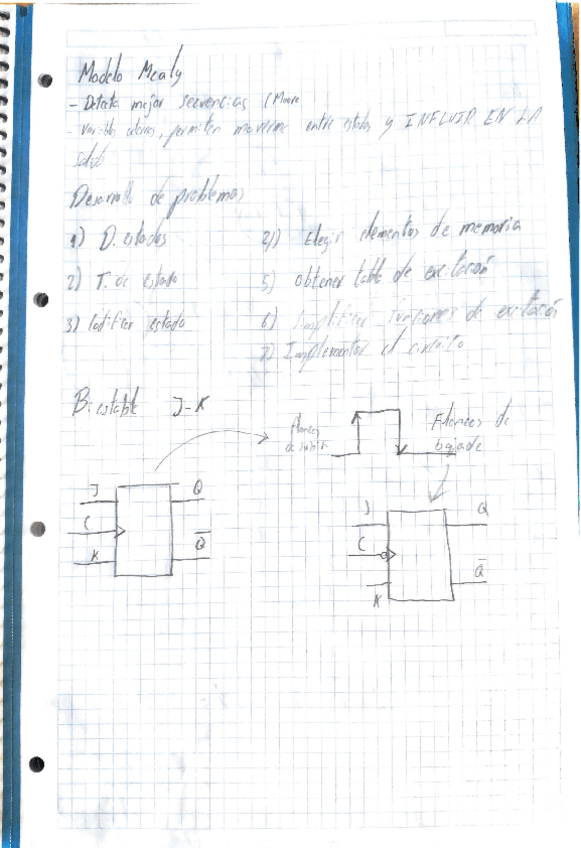 Modelo Mealy
- Detecta mejor secuencias (Moore
- variables , permiten moverme entre estados y INFLUIR EN LA
salida
Desarrollo de problemas
1) D. estados
2) T. de estado
3) Codificar estado
4) Elegir elementos de memoria
5) obtener tabla de excitación
6) Simplificar funciones de excitación
7) Implementar el circuito
Biestable J-K
Flancos
de subida
Flancos de
bajada
J Q
C
K Q̅
J Q
C
K Q̅